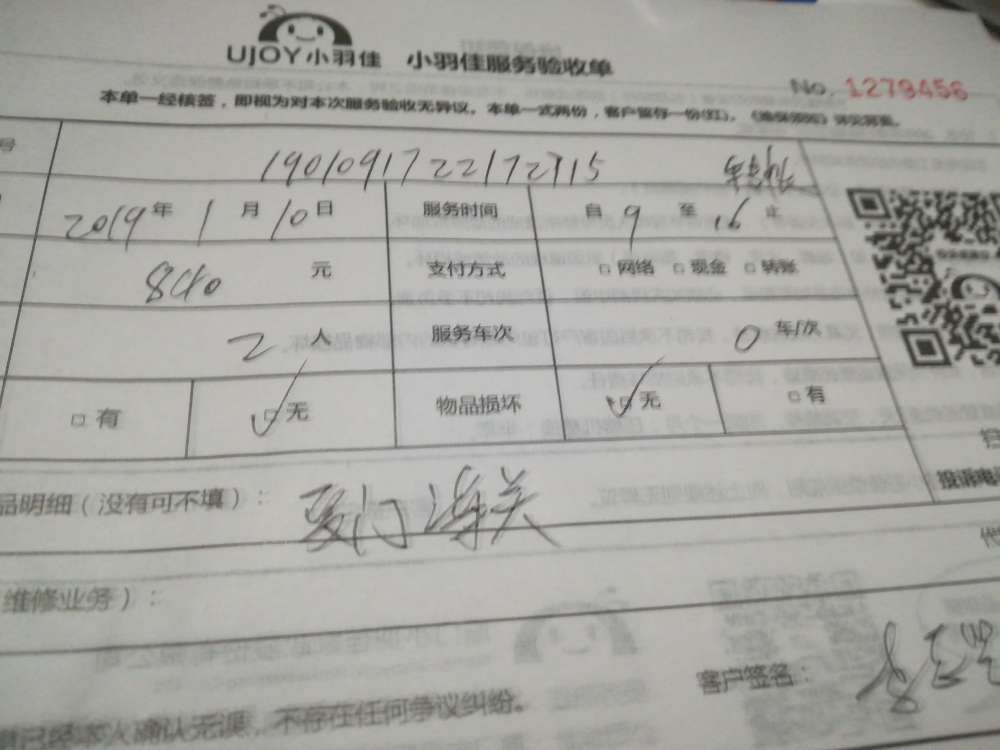 UJOY小羽佳 小羽佳服务验收单
No. 1279456
本单一经核签，即视为对本次服务验收无异议。本单一式两份，客户留存一份(红)。
号 转账
2019年1月10日 服务时间 自9至16止
840元 支付方式 □网络 □现金 □转账
2人 服务车次 0车/次
□有 ☑无 物品损坏 ☑无 □有
投诉电
品明细（没有可不填）： 厦门海关
代
维修业务）：
客户签名：
本人确认无误，不存在任何争议纠纷。